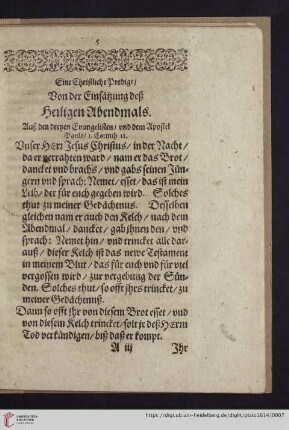 5
Eine Christliche Predigt/
Von der Einsätzung deß
Heiligen Abendmals.
Auß den dreyen Evangelisten/ vnd dem Apostel
Paulo/ 1. Corinth 11.
Vnser HErr Jesus Christus/ in der Nacht/
da er verrahten ward/ nam er das Brot/
dancket vnd brachs/ vnd gabs seinen Jün-
gern vnd sprach: Nemet/ esset/ das ist mein
Leib/ der für euch gegeben wird. Solches
thut zu meiner Gedächtnus. Desselben
gleichen nam er auch den Kelch/ nach dem
Abendmal/ dancket/ gab ihnen den/ vnd
sprach: Nemet hin/ vnd trincket alle dar-
auß/ dieser Kelch ist das newe Testament
in meinem Blut/ das für euch vnd für viel
vergossen wird/ zur vergebung der Sün-
den. Solches thut/ so offt jhrs trincket/ zu
meiner Gedächtnuß.
Dann so offt jhr von diesem Brot esset/ vnd
von diesem Kelch trincket/ solt jr deß HErrn
Tod verkündigen/ biß daß er kompt.
A iij Jhr
UNIVERSITÄTS-
BIBLIOTHEK
HEIDELBERG
https://digi.ub.uni-heidelberg.de/diglit/platz1614/0007